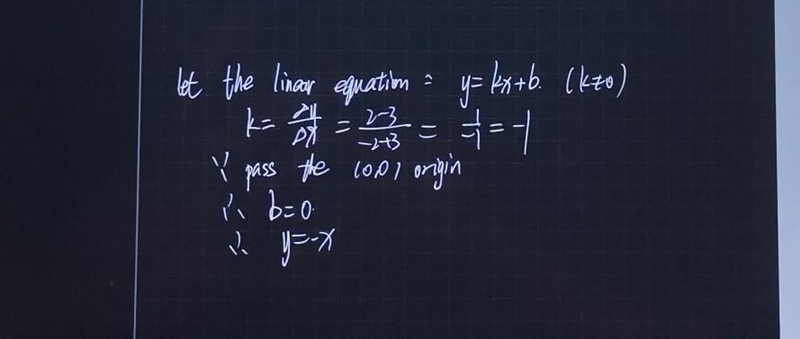 let the linear equation = y=kx+b. (k≠0)
k= Δy/Δx = 2-3/-2+3 = 1/-1 = -1
∵ pass the (0,0) origin
∴ b=0.
∴ y=-x